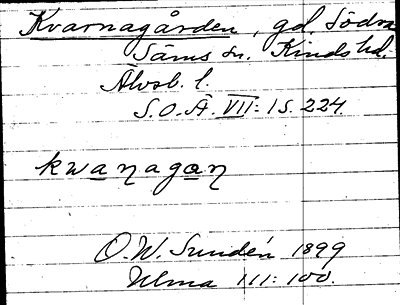 Kvarnagården, gd. Södra
Säms sn. Kinds hd.
Älvsb. l.
S.O.Ä. VII:1 s. 224.
kwanagan
O.W. Sundén 1899
Ulma 111:100.